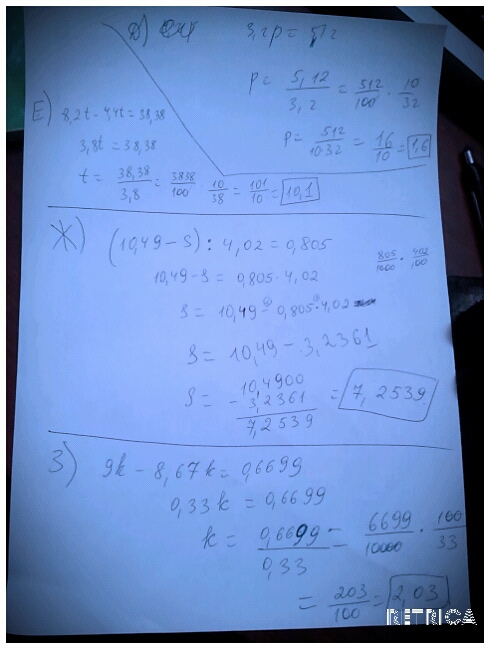 Д) 3,2p = 512
p = 5,12 / 3,2 = 512/100 · 10/32
p = 512 / 10·32 = 16/10 = 1,6
Е) 8,2t - 4,4t = 38,38
3,8t = 38,38
t = 38,38 / 3,8 = 3838/100 · 10/38 = 101/10 = 10,1
Ж) (10,49 - S) : 4,02 = 0,805
805/1000 · 402/100
10,49 - S = 0,805 · 4,02
S = 10,49 - 0,805 · 4,02
S = 10,49 - 3,2361
S = 10,4900
- 3,2361
7,2539
= 7,2539
З) 9k - 8,67k = 0,6699
0,33k = 0,6699
k = 0,6699 / 0,33 = 6699/10000 · 100/33
= 203/100 = 2,03
RETRICA